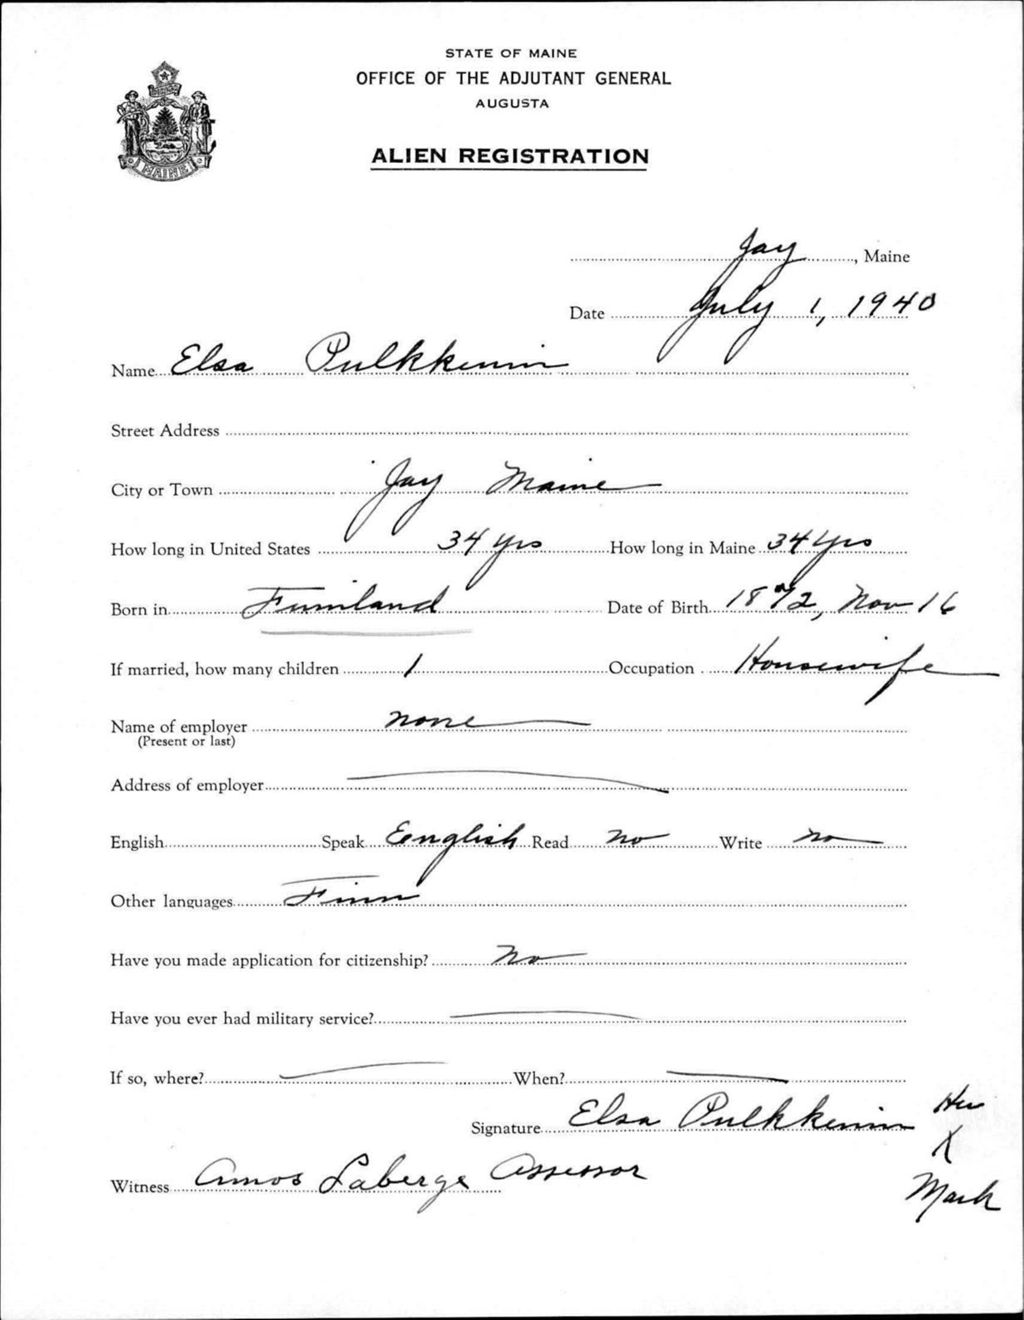 STATE OF MAINE
OFFICE OF THE ADJUTANT GENERAL
AUGUSTA
ALIEN REGISTRATION
MAINE
Jay, Maine
Date July 1, 1940
Name Elsa Pulkkenin
Street Address
City or Town Jay Maine
How long in United States 34 yrs How long in Maine 34 yrs
Born in Finnland Date of Birth 1872, Nov 16
If married, how many children 1 Occupation Housewife
Name of employer none
(Present or last)
Address of employer
English Speak English Read no Write no
Other languages Finn
Have you made application for citizenship? No
Have you ever had military service?
If so, where? When?
Signature Elsa Pulkkenin Her
X
Mark
Witness Amos Laberge Assessor